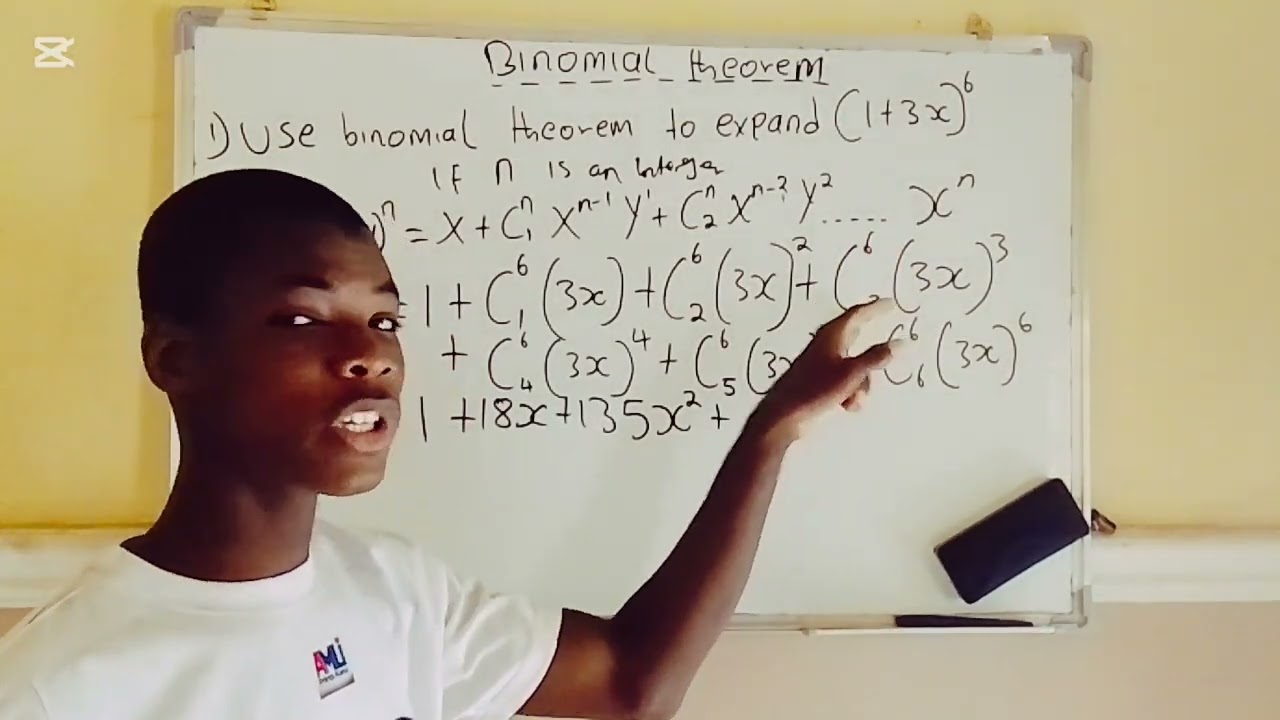 Binomial theorem
1) Use binomial theorem to expand (1+3x)⁶
If n is an Interger
)ⁿ = X + C₁ⁿ Xⁿ⁻¹ Y¹ + C₂ⁿ Xⁿ⁻² Y² ...... xⁿ
= 1 + C₁⁶ (3x) + C₂⁶ (3x)² + C⁶ (3x)³
+ C₄⁶ (3x)⁴ + C₅⁶ (3x C₆⁶ (3x)⁶
1 + 18x + 135x² +
AMLI